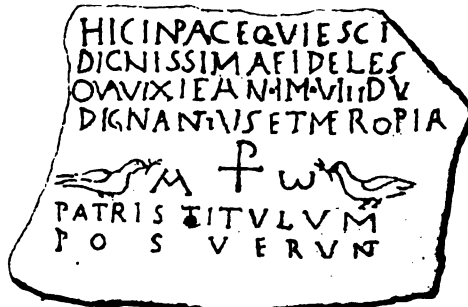 HICINPACEQVIESCI
DIGNISSIMAFIDELES
QVAVIXIEAN·IM·VIIIDV
DIGNANTIVSETMEROPIA
A ⳨ ω
PATRIS TITVLVM
POSVERVNT